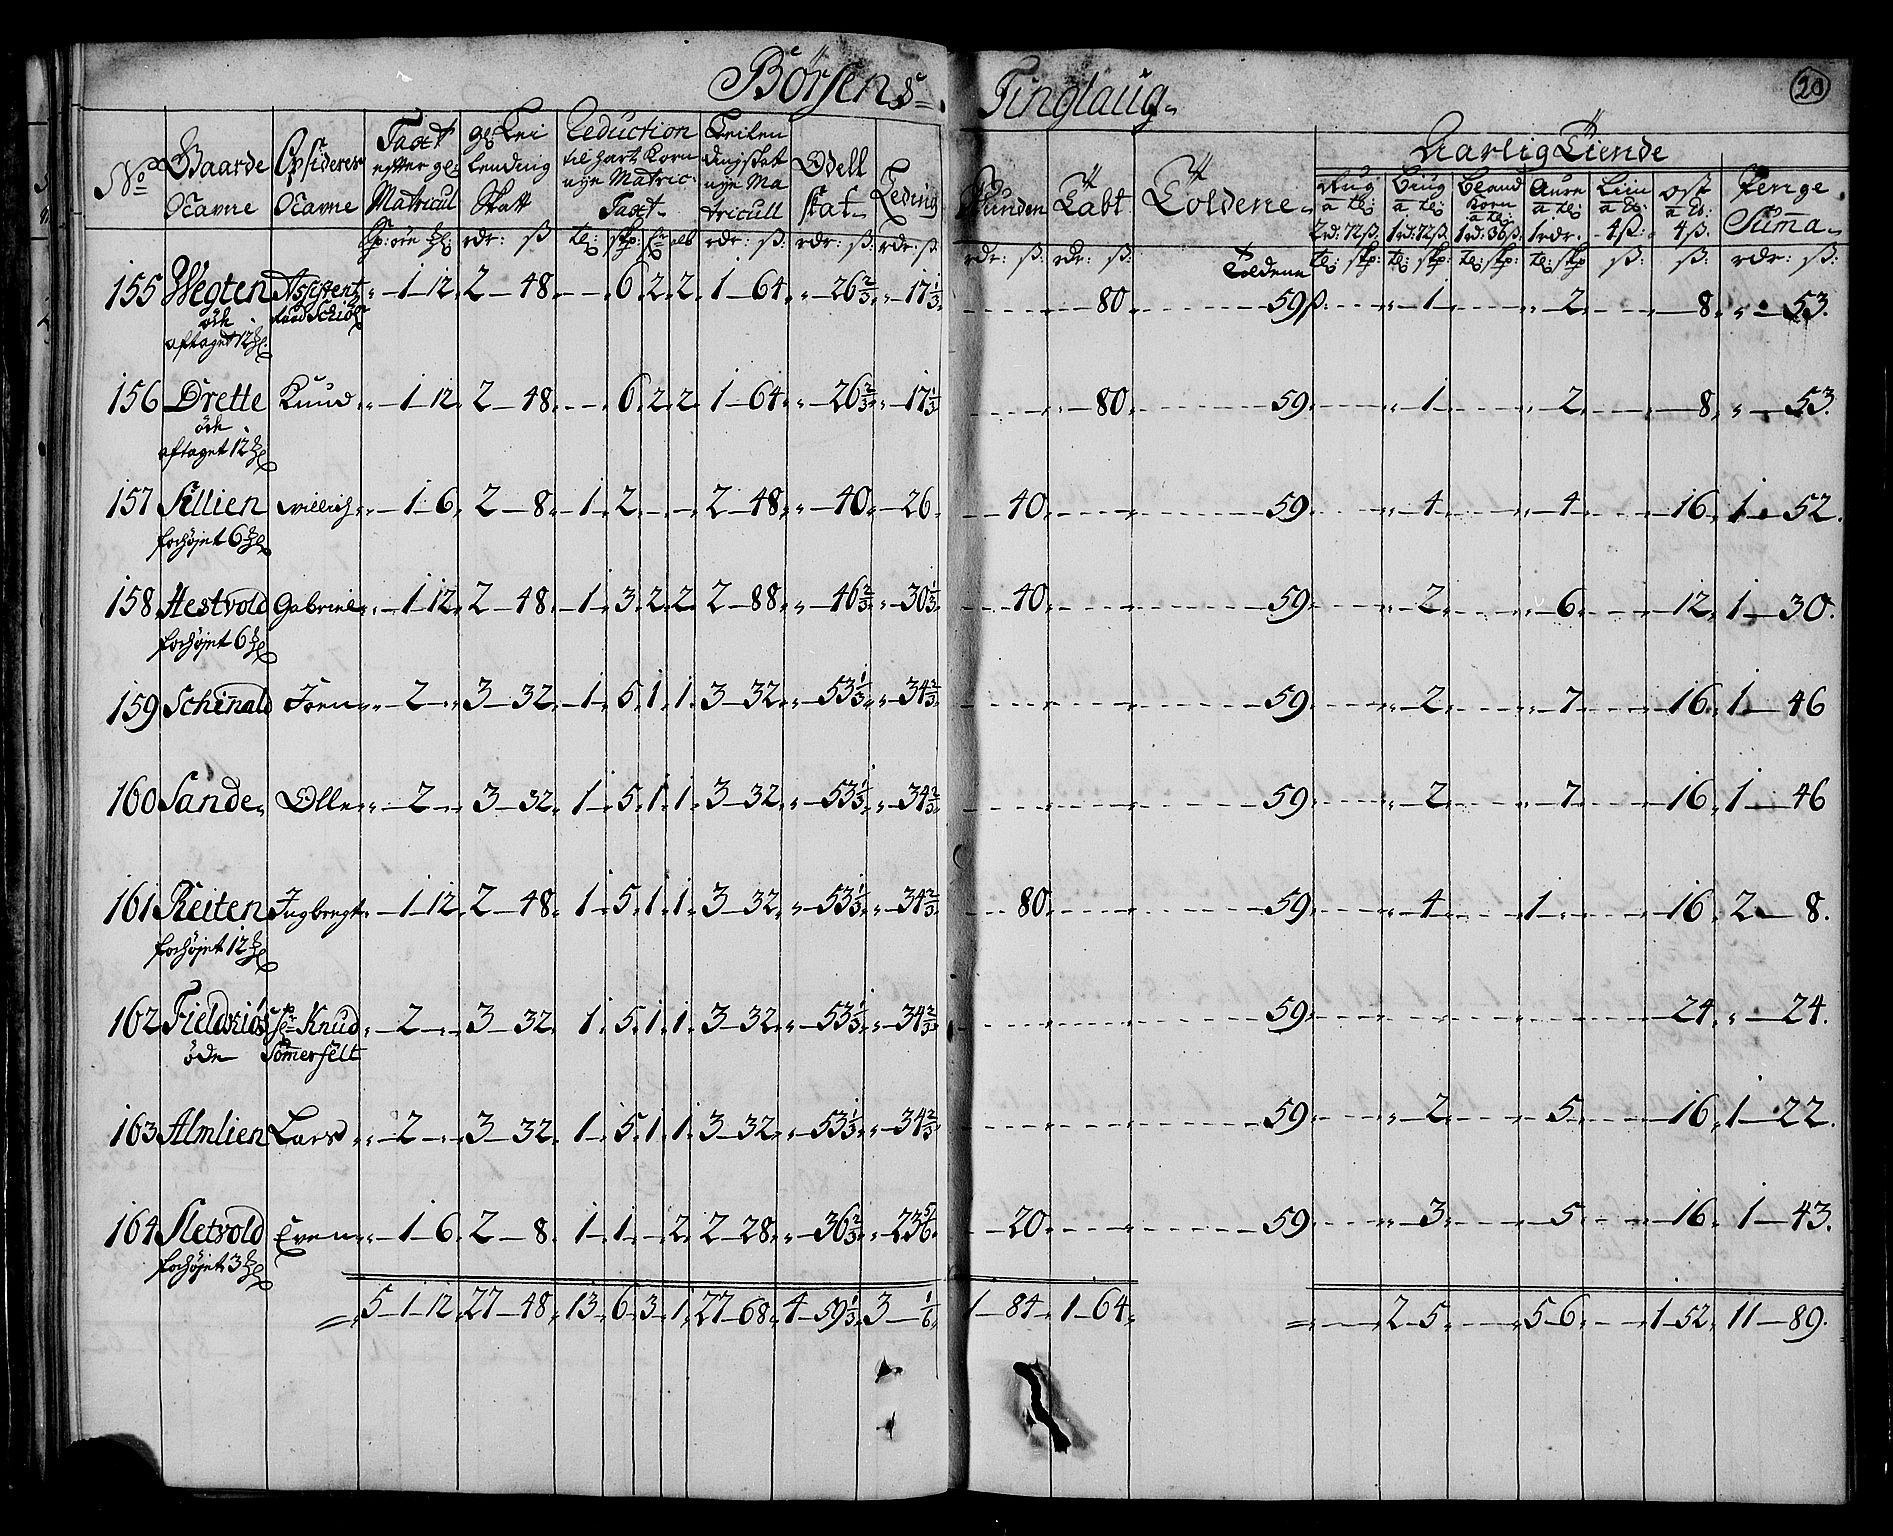 Börsens Tinglaug
20
Aarlig Tiende
No Gaarde Navne Opsiderer Navne Taxt efter gl: Matricul gl: Lei lending Skatt Reduction til hart Korn nÿe Matric: Taxt Leilen dingskat nÿe Matricull Odell skat Leding Tabt Toldene Rug a tø: 2 rd: 72 ß Biug a tø: 1 rd: 72 ß Bland Korn a tø: 1 rd: 36 ß Aure a tø: 1 rdr. 4 ß: ost 4 ß. Penge Suma
155 Wegten Assistent 1 12 2 48 6 2 2 1 64 26 2/3 17 1/3 80 59 ß 1 2 8 53
öde
aftaget 12
156 Drette Knud 1 12 2 48 6 2 2 1 64 26 2/3 17 1/3 80 59 1 2 8 53
öde
aftaget 12
157 Sillien Willich 1 6 2 8 1 2 2 48 40 26 40 59 4 4 16 1 52
forhöjet 6
158 Hestvold Gabriel 1 12 2 48 1 3 2 2 2 88 46 2/3 30 1/3 40 59 2 6 12 1 30
forhöjet 6
159 Schinald Joen 2 3 32 1 5 1 1 3 32 53 1/3 34 2/3 59 2 7 16 1 46
160 Sande Olle 2 3 32 1 5 1 1 3 32 53 1/3 34 2/3 59 2 7 16 1 46
161 Reiten Ingbregt 1 12 2 48 1 5 1 1 3 32 53 1/3 34 2/3 80 59 4 1 16 2 8
forhöjet 12
162 Knud 2 3 32 1 5 1 1 3 32 53 1/3 34 2/3 59 24 24
öde Somerfelt
163 Almlien Lars 2 3 32 1 5 1 1 3 32 53 1/3 34 2/3 59 2 5 16 1 22
164 Sletvold Even 1 6 2 8 1 1 2 2 28 36 2/3 23 5/6 20 59 3 5 16 1 43
forhöjet 3
5 1 12 27 48 13 6 3 1 27 68 4 59 1/3 3 1/6 1 84 1 64 2 5 5 6 1 52 11 89